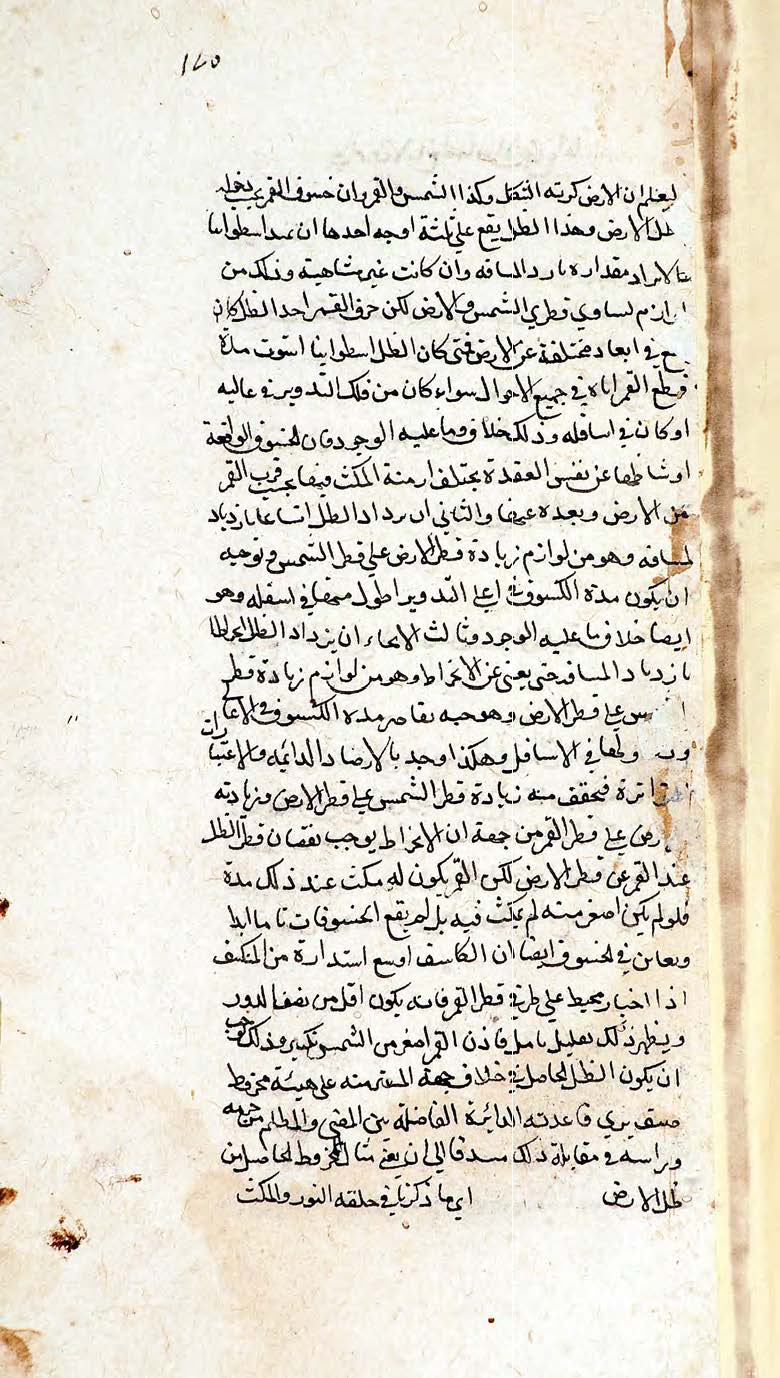 ١٤٥
ليعلم ان الارض كرية الشكل وكذا الشمس والقمر وان خسوف القمر يجب بدخوله
ظل الارض وهذا الظل يقع علي ثلثة اوجه احدها ان يمتد اسطوانيا
لا يزداد مقداره بازدياد المسافه وان كانت غير متناهية وذلك من
لوازم تساوي قطري الشمس والارض لكن جرف القمر احد الظل كان
يقع في ابعاد مختلفة عن الارض فمتى كان الظل اسطوانيا استوت مدة
قطع القمر اياه في جميع الاحوال سواء كان من فلك التدوير في عاليه
او كان في اسافله وذلك خلاف وما عليه الوجود فان الخسوف الواقعة
او شاطها عن نفس العقدة يختلف ازمنة المكث فيها بحسب قرب القمر
من الارض وبعده عنها والثاني ان يزداد الظل اتساعا بازدياد
المسافه وهو من لوازم زيادة قطر الارض علي قطر الشمس وتوجيه
ان يكون مدة الكسوف في اعلي التدوير اطول منها في اسفله وهو
ايضا خلاف ما عليه الوجود وثالث الانحاء ان يزداد الظل انخراطا
بازدياد المسافة حتى يفنى عن الانخراط وهو من لوازم زيادة قطر
الشمس علي قطر الارض وموجبه تقاصر مدة الكسوف في الاعالي
وطولها في الاسافل وهكذا اوجد بالارصاد الدائمه والاعتبارات
المتواترة فتحقق منه زيادة قطر الشمس علي قطر الارض وزيادته
الارض علي قطر القمر من جهة ان الانخراط يوجب نقصان قطر الظل
عند القمر عن قطر الارض لكن القمر يكون له مكث عند ذلك مدة
فلو لم يكن اصغر منه لم يمكث فيه بل لم يقع الخسوفات تاما ابدا
ويعاين في الخسوف ايضا ان الكاسف اوسع استدارة من المنكسف
اذا اجتاز محيط علي طرفي قطر القمر فانه يكون اقل من نصف الدور
ويظهر ذلك بقليل تامل فاذن القمر اصغر من الشمس بكثير وذلك يوجب
ان يكون الظل الحاصل في خلاف جهة المستنير منه علي هيئة مخروط
مستدير قاعدته الدائرة الفاصلة بين المضي والمظلم من جرمه
وراسه في مقابلة ذلك مستدقا الي ان يفنى مثال المخروط الحاصل من
ظل الارض اي ما ذكرنا في حلقه النور والمكث